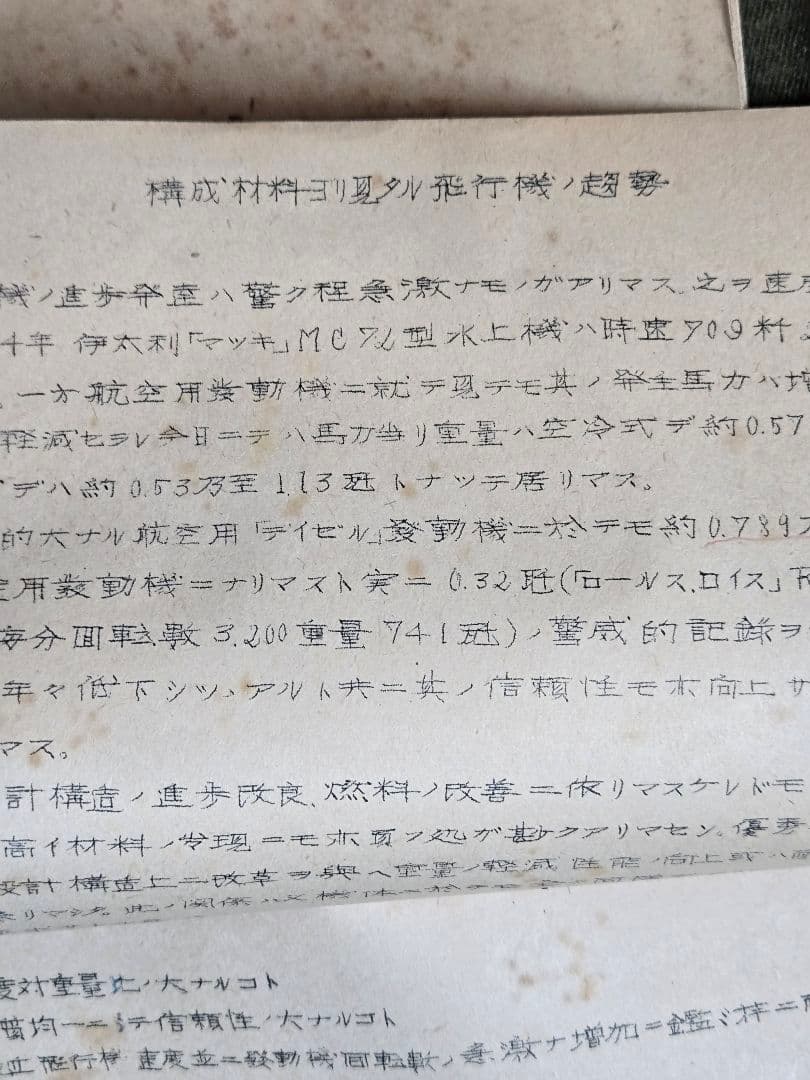 構成材料ヨリ見タル飛行機ノ趨勢
機ノ進歩発達ハ驚ク程急激ナモノガアリマス、之ヲ速度
4年 伊太利「マッキ」MC72型水上機ハ時速709粁
一方航空用発動機ニ就テ見テモ其ノ発生馬力ハ増
軽減セラレ今日ニテハ馬力当リ重量ハ空冷式デ約0.57
デハ約0.53乃至1.13瓩トナッテ居リマス。
的大ナル航空用「デイゼル」發動機ニ於テモ約0.789
用發動機ニナリマスト実ニ0.32瓩(「ロールス、ロイス」
毎分回転数3,200重量741瓩)ノ驚威的記録ヲ
年々低下シツヽアルト共ニ其ノ信頼性モ亦向上サ
マス。
計構造ノ進歩改良、燃料ノ改善ニ依リマスケレドモ
高イ材料ノ発現ニモ亦負フ処ガ尠クアリマセン。優秀
設計構造上ニ改革ヲ與ヘ重量ノ軽減性能ノ向上
リマス。此ノ関係ハ
度対重量比ノ大ナルコト
質均一ニシテ信頼性ノ大ナルコト
飛行機速度並ニ發動機回転数ノ急激ナ増加ニ鑑ミ特ニ